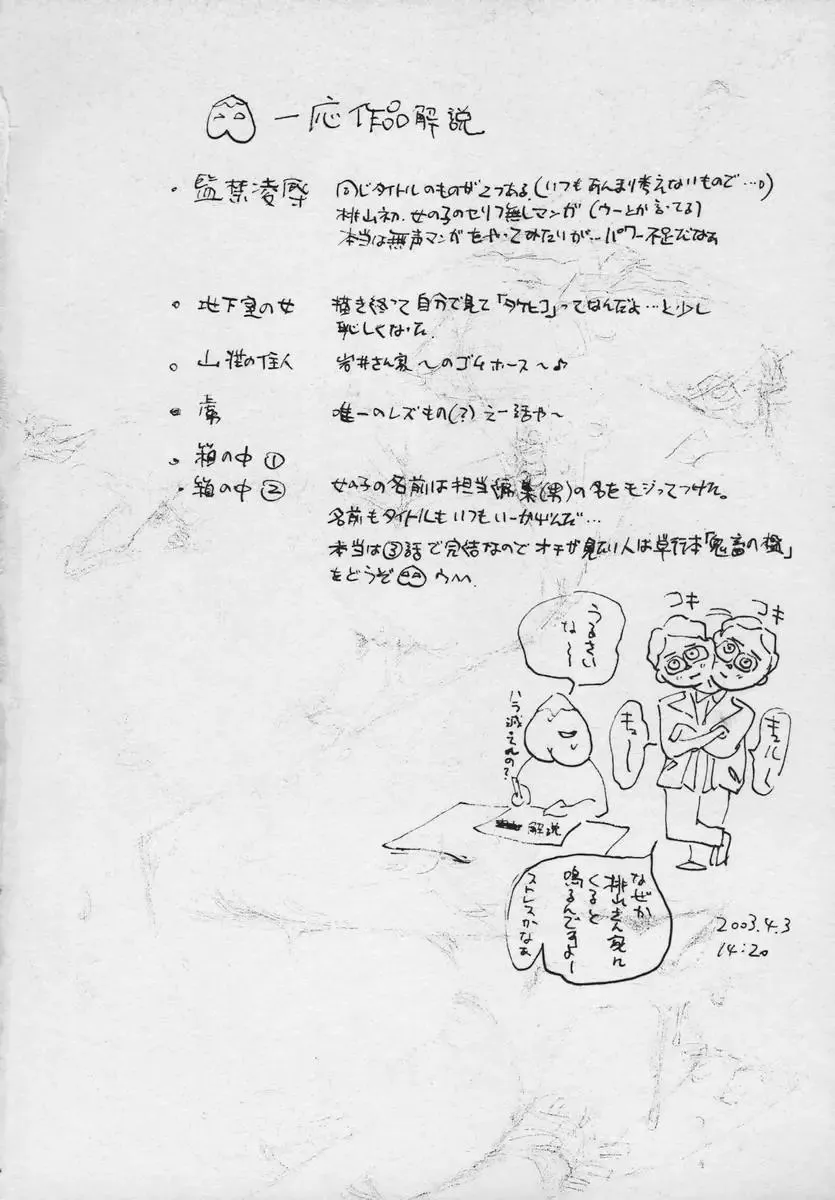 一応作品解説
・監禁凌辱 同じタイトルのものが2つある。(いつもあんまり考えないもので…。)
桃山初、女の子のセリフ無しマンガ(ウーとか言ってる)
本当は無声マンガをやってみたいが…パワー不足だなぁ
・地下室の女 描き終って自分で見て「タケヒコ」ってなんだよ…と少し
恥しくなった
・山荘の住人 岩井さん家〜のゴムホース〜♪
唯一のレズもの(?)えー話や〜
・箱の中①
・箱の中② 女の子の名前は担当編集(男)の名をモジってつけた。
名前もタイトルもいつもいーかげんだ…
本当は③話で完結なのでオチが見たい人は単行本「鬼畜の檻」
をどうぞ
うるさい
な〜
コキ
コキ
ハラ減ってんの?
キュー
キュルルー
解説
なぜか
桃山さん家に
くると
鳴るんですよー
ストレスかなぁ
2003.4.3
14:20